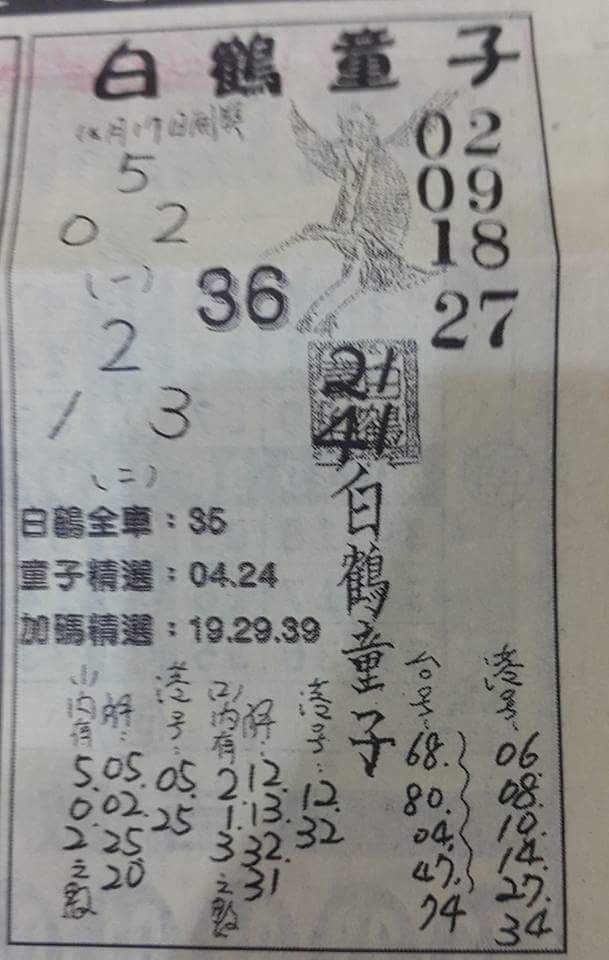 白鶴童子
12月17日開獎
5
0 2
(一)
2
1 3
(二)
02
09
18
27
36
21
41
白鶴童子
白鶴全車：35
童子精選：04.24
加碼精選：19.29.39
(1)內有
5.
0.
2
之數
解：
05.
02.
25
20
港号：
05.
25
(2)內有
2.
1.
3
之數
解：
12.
13.
32.
31
港号：
12.
32
台号：
68.
80.
04.
47.
74
港号：
06
08.
10.
14.
27.
34